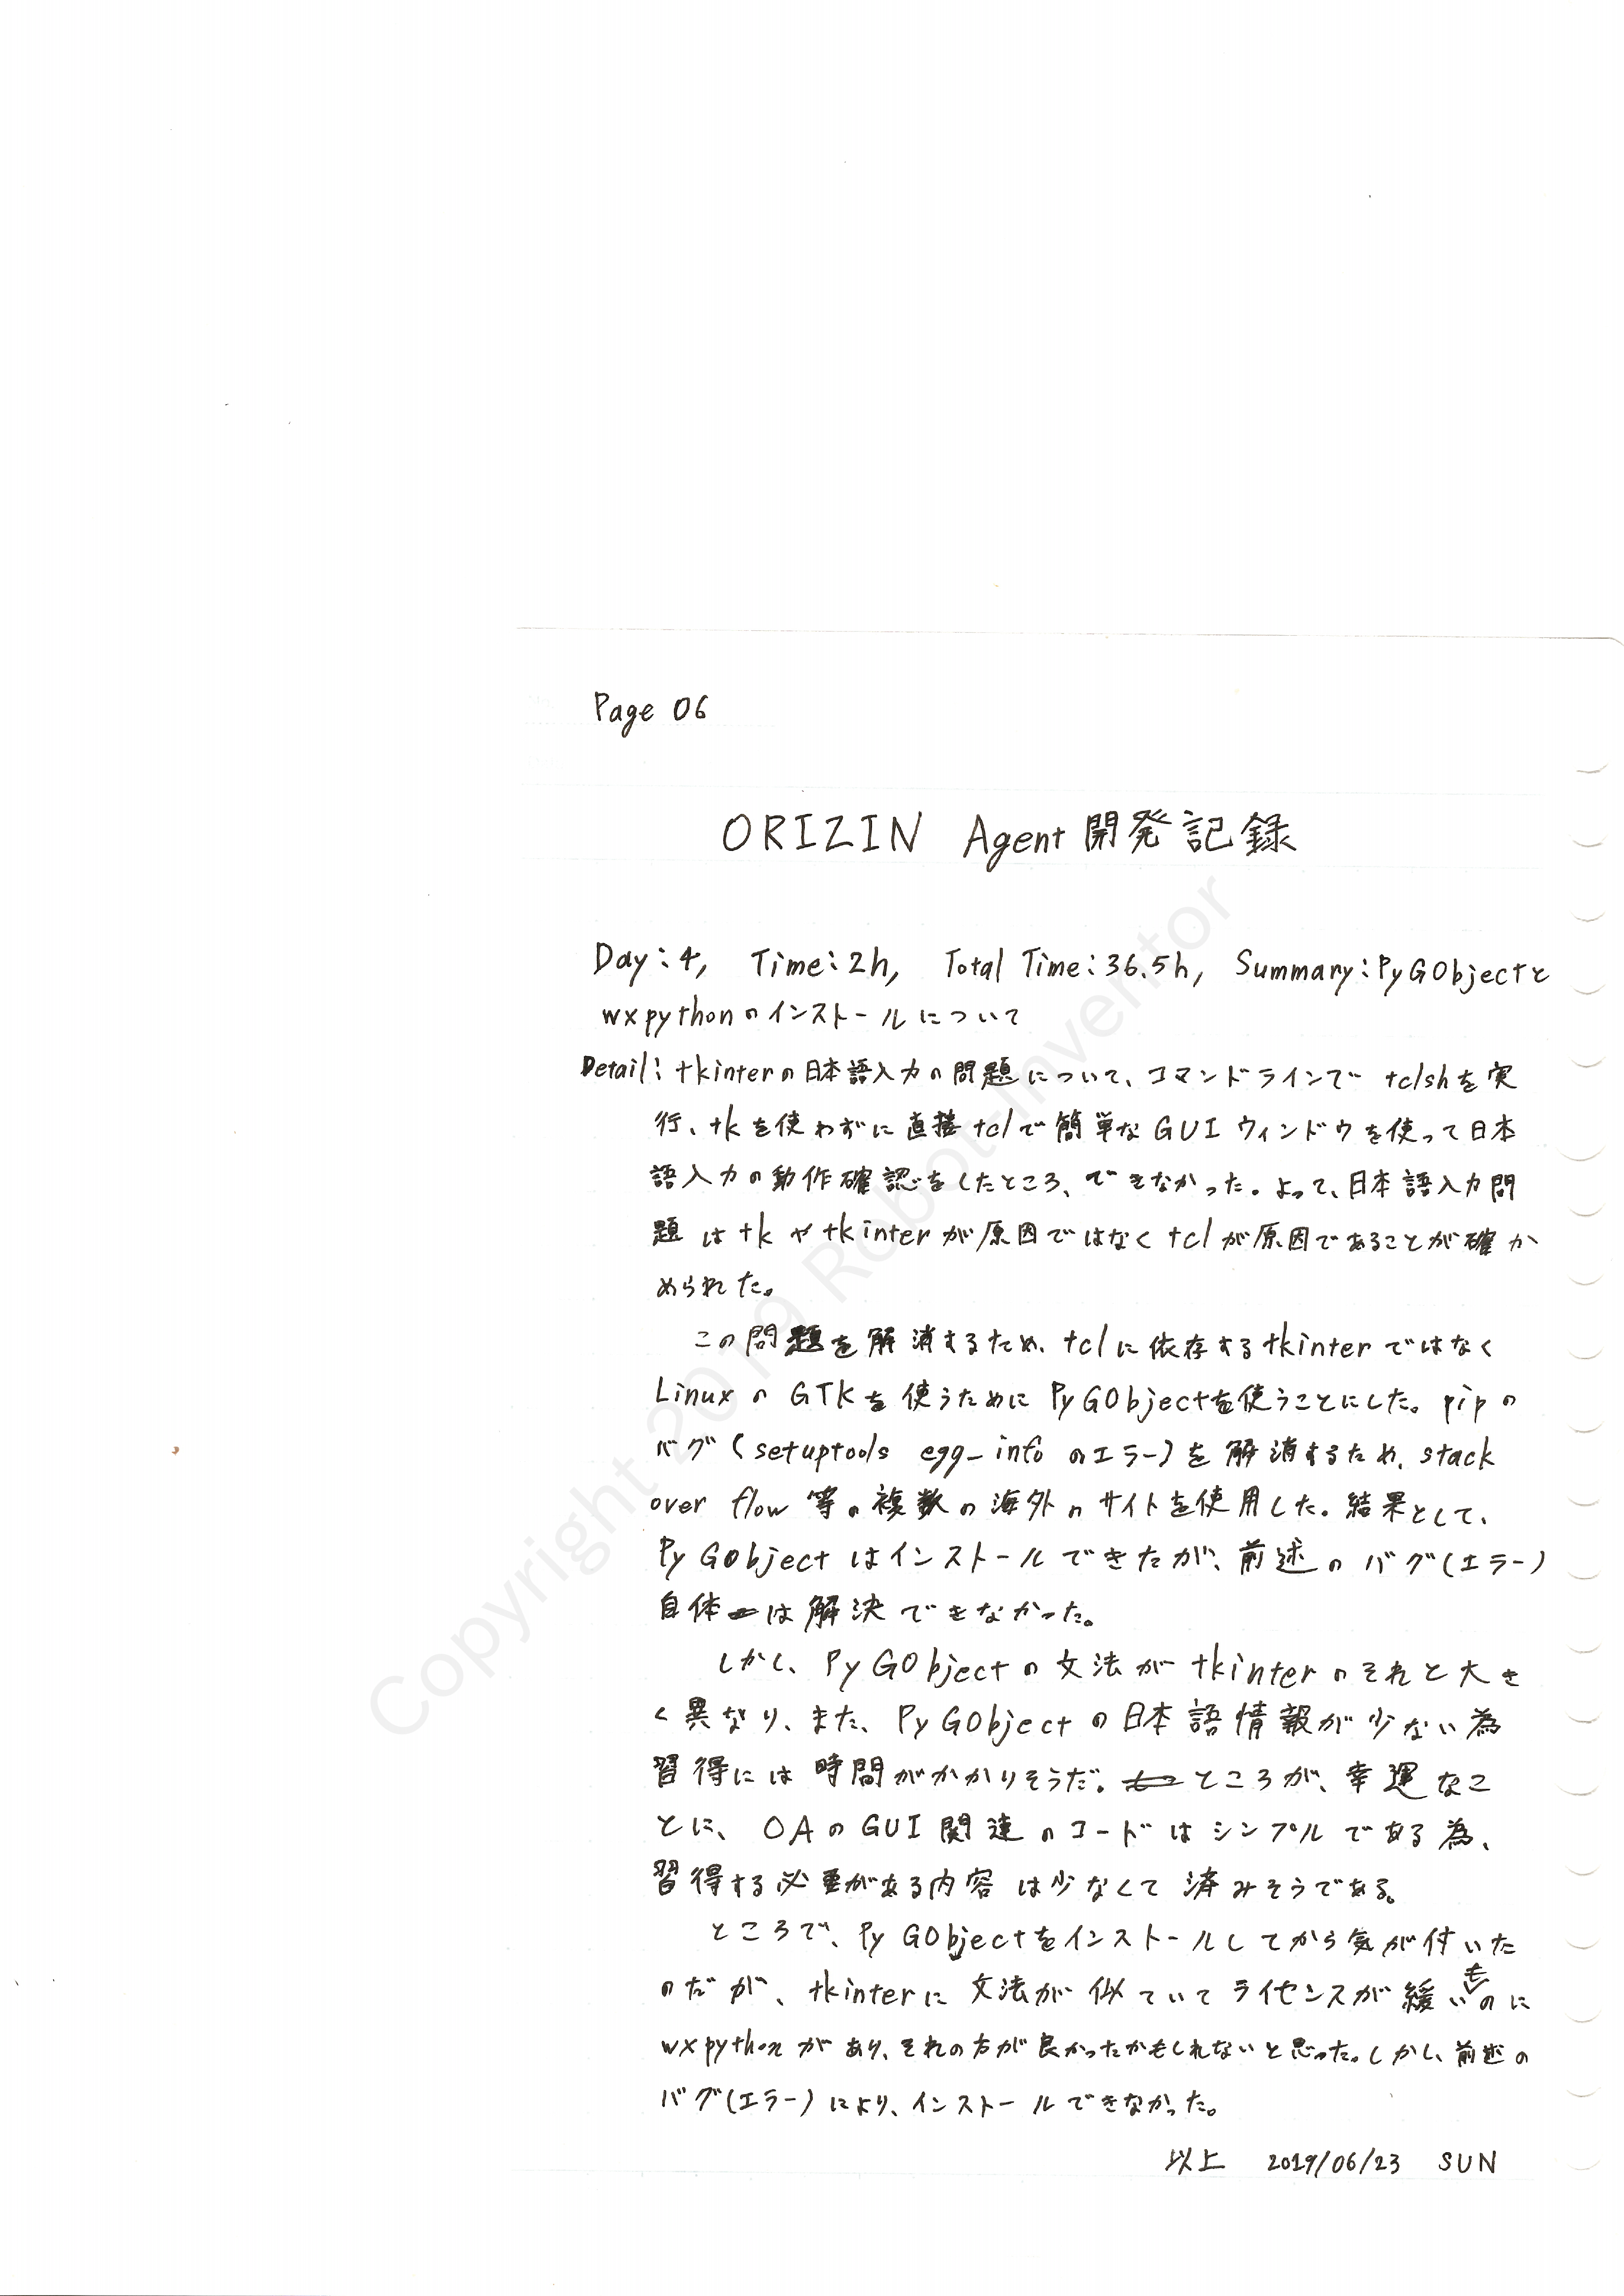 Page 06
ORIZIN Agent 開発記録
Day:4, Time:2h, Total Time:36.5h, Summary:PyGObjectと
wxpythonのインストールについて
Detail:tkinterの日本語入力の問題について、コマンドラインで tclshを実
行、tkを使わずに直接tclで簡単なGUIウィンドウを使って日本
語入力の動作確認をしたところ、できなかった。よって、日本語入力問
題はtkやtkinterが原因ではなくtclが原因であることが確か
められた。
この問題を解消するため、tclに依存するtkinterではなく
LinuxのGTKを使うためにPyGObjectを使うことにした。pipの
バグ(setuptools egg_infoのエラー)を解消するため、stack
over flow等の複数の海外のサイトを使用した。結果として、
PyGobjectはインストールできたが、前述のバグ(エラー)
自体は解決できなかった。
しかし、PyGObjectの文法がtkinterのそれと大き
く異なり、また、PyGObjectの日本語情報が少ない為
習得には時間がかかりそうだ。ところが、幸運なこ
とに、OAのGUI関連のコードはシンプルである為、
習得する必要がある内容は少なくて済みそうである。
ところで、PyGObjectをインストールしてから気が付いた
のだが、tkinterに文法が似ていてライセンスが緩いものに
wxpythonがあり、それの方が良かったかもしれないと思った。しかし、前述の
バグ(エラー)により、インストールできなかった。
以上 2019/06/23 SUN
Copyright 2019 Robot-Inventor